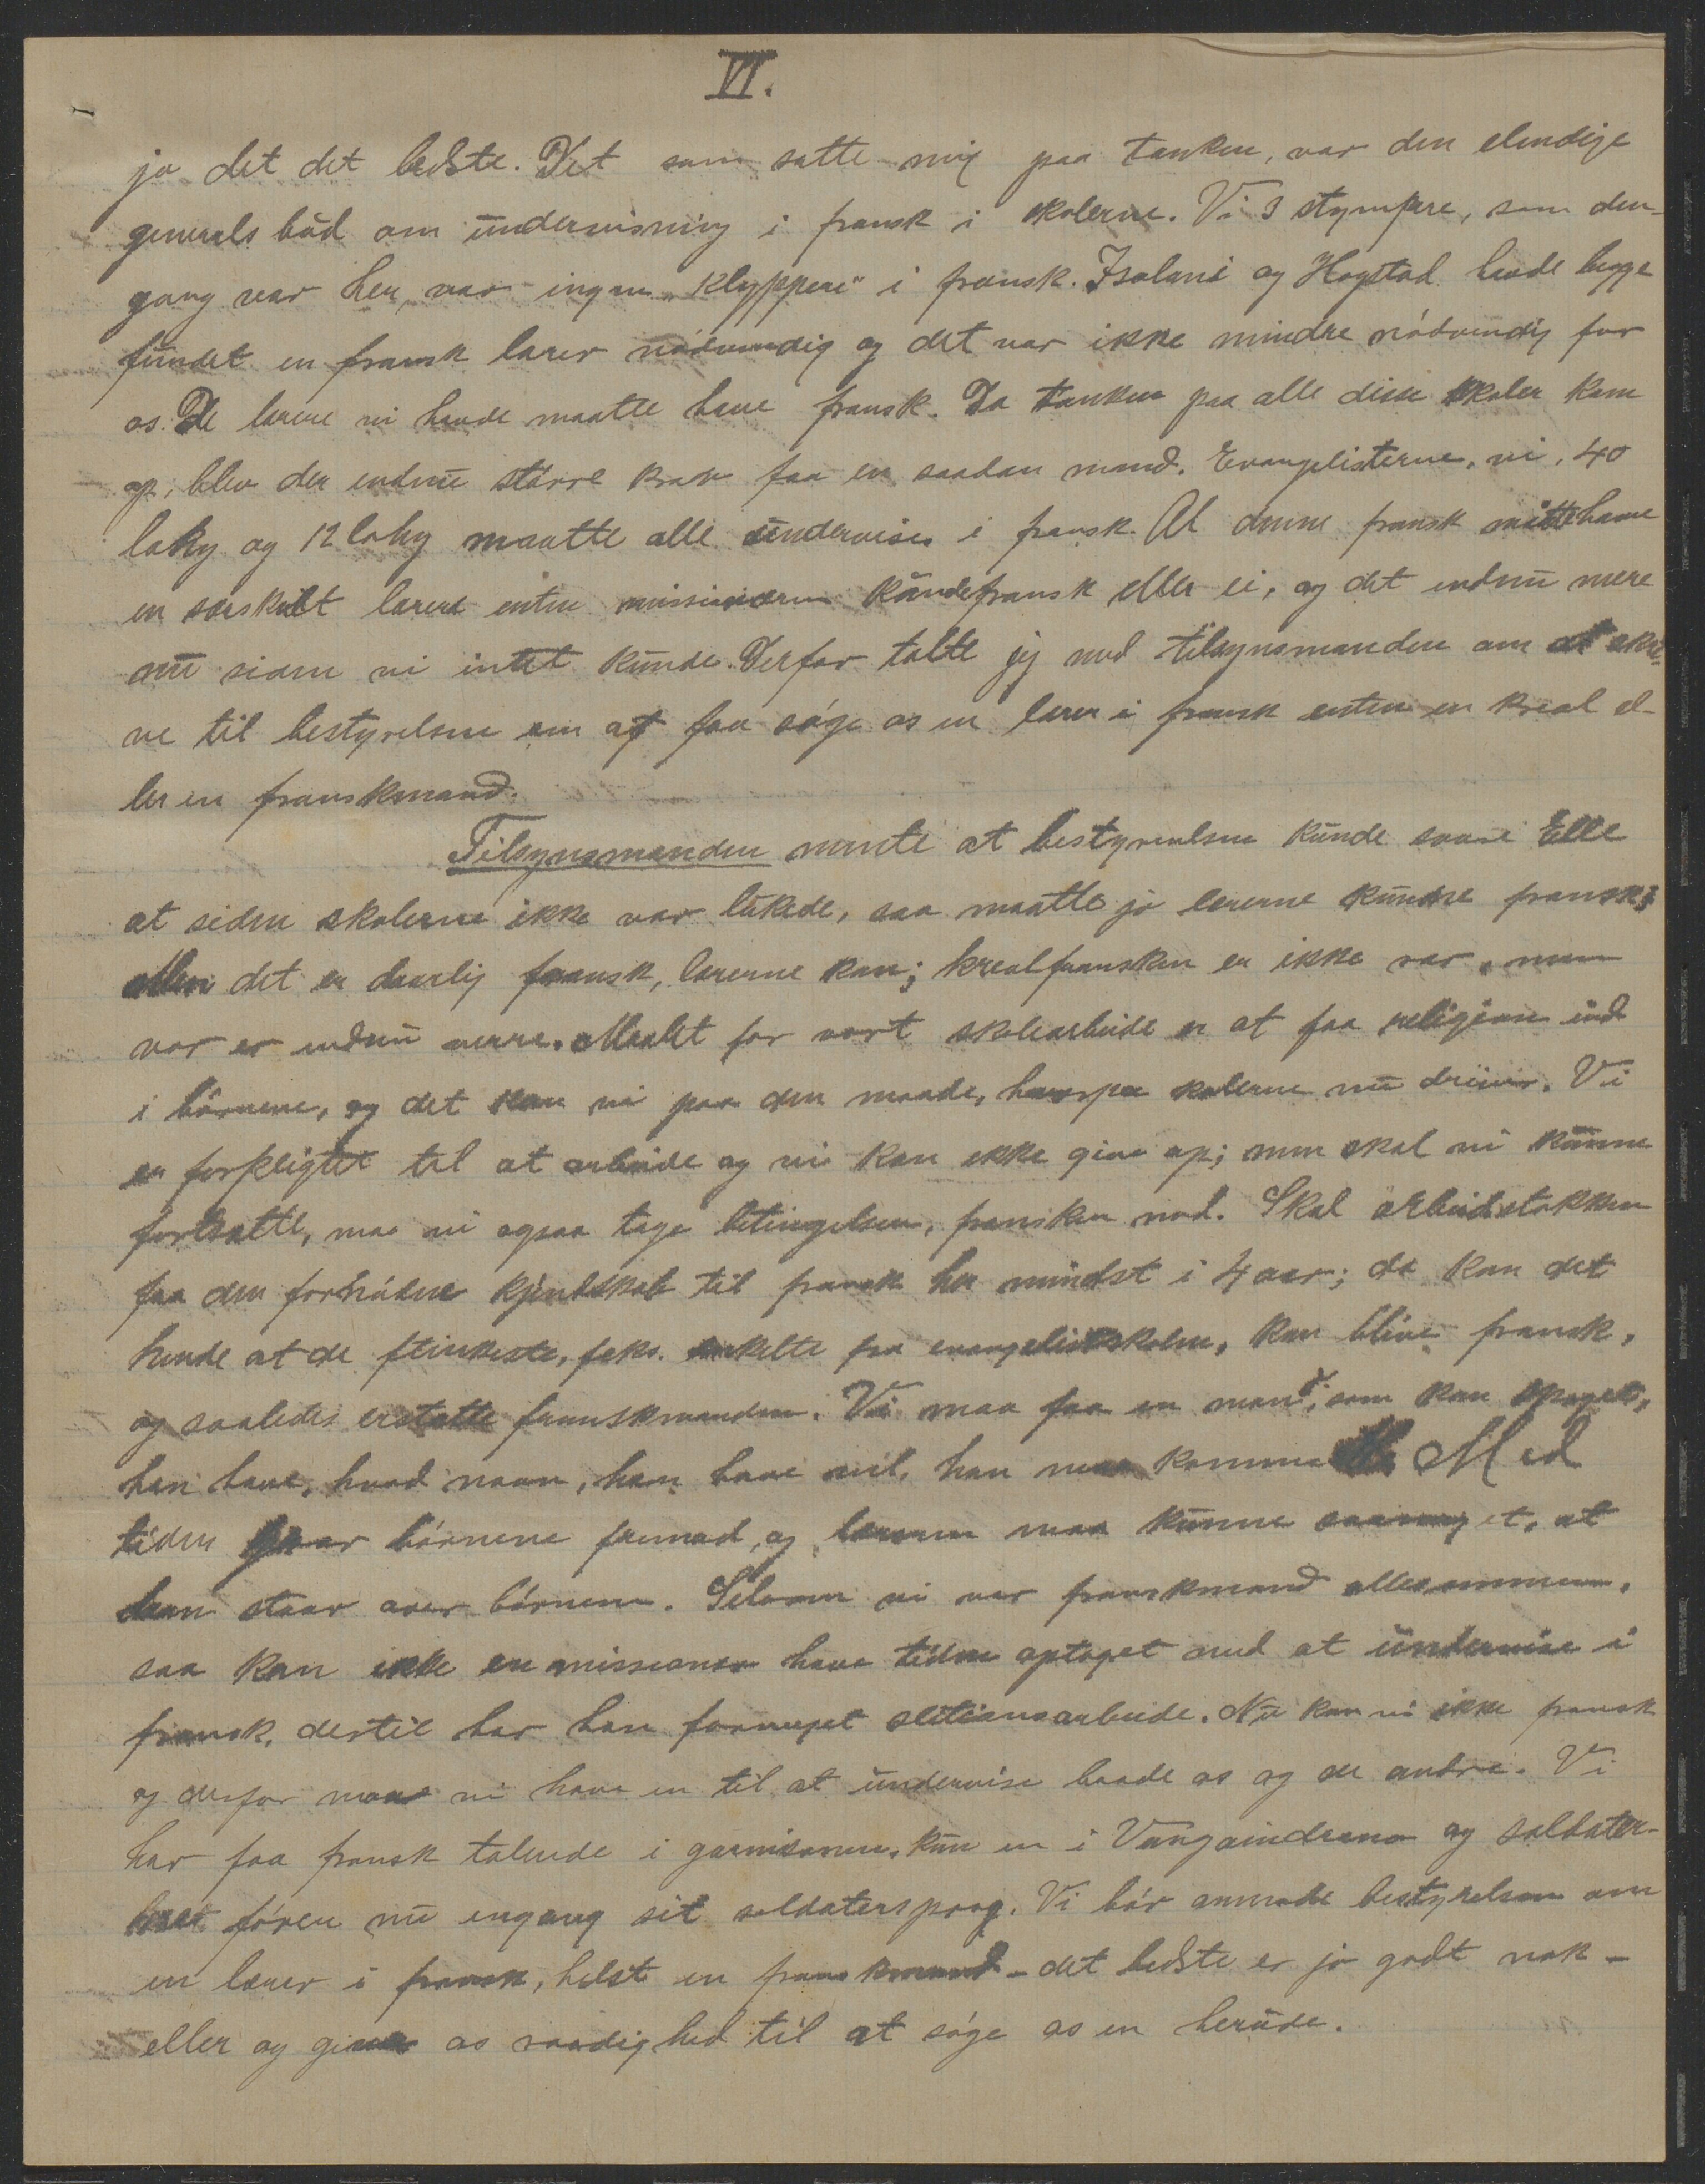 VI.
jo det det bedste. Det som satte mig paa tanken, var den elendige
generals bud om undervisning i fransk i skolerne. Vi 3 stympere, som den-
gang var her, var ingen "klyppere" i fransk. Isolani og Hogstad havde begge
fundet en fransk lærer nødvendig og det var ikke mindre nødvendig for
os. De lærere vi havde maatte have fransk. Da tanken paa alle disse skoler kom
op, blev der endnu større krav faa en saadan mand. Evangelisterne, vi, 40
lahy og 12 lahy maatte alle undervises i fransk. Al denne fransk måtte have
en særskilt lærere enten missionæren kunde fransk eller ei, og det endnu mere
nu siden vi intet kunde. Derfor talte jeg med tilsynsmanden om at skri-
ve til bestyrelsen om at faa søge os en lærer i fransk enten en kreol el-
ler en franskmand.
Tilsynsmanden mente at bestyrelsen kunde svare Elle
at siden skolerne ikke var lukede, saa maatte jo lærerne kunne fransk;
Men det er daarlig fransk, lærerne kan; kreolfransken er ikke rar, men
vor er endnu verre. Maalet for vort skolearbeide er at faa religion ind
i børnene, og det kan vi paa den maade, hvorpaa skolerne nu drives. Vi
er forpligtet til at arbeide og vi kan ikke give op; men skal vi kunne
fortsætte, maa vi ogsaa tage betingelsen, fransken med. Skal arbeidstokken
faa den fornødne kjendskab til fransk her mindst i 4 aar; da kan det
hende at de flinkeste, f.eks. enkelte fra evangelistskolen, kan blive fransk,
og saaledes erstatte franskmanden. Vi maa faa en mand, som kan sproget,
han have, hvad navn, han have vil, han maa komme Med
tiden gaar børnene fremad, og læreren maa kunne saameget, at
han staar over børnene. Selvom vi var franskmænd allesammen,
saa kan ikke en missionær have tiden optaget med at undervise i
fransk, dertil har han formeget stationsarbeide. Nu kan vi ikke fransk
og derfor maa vi have en til at undervise baade os og de andre. Vi
har faa fransk talende i garnisonen, kun en i Vangaindrano og soldater-
fører nu engang sit soldatersprog. Vi bør anmode bestyrelsen om
en lærer i fransk, helst en franskmand – det bedste er jo godt nok –
eller og give os raadighed til at søge os en herude.